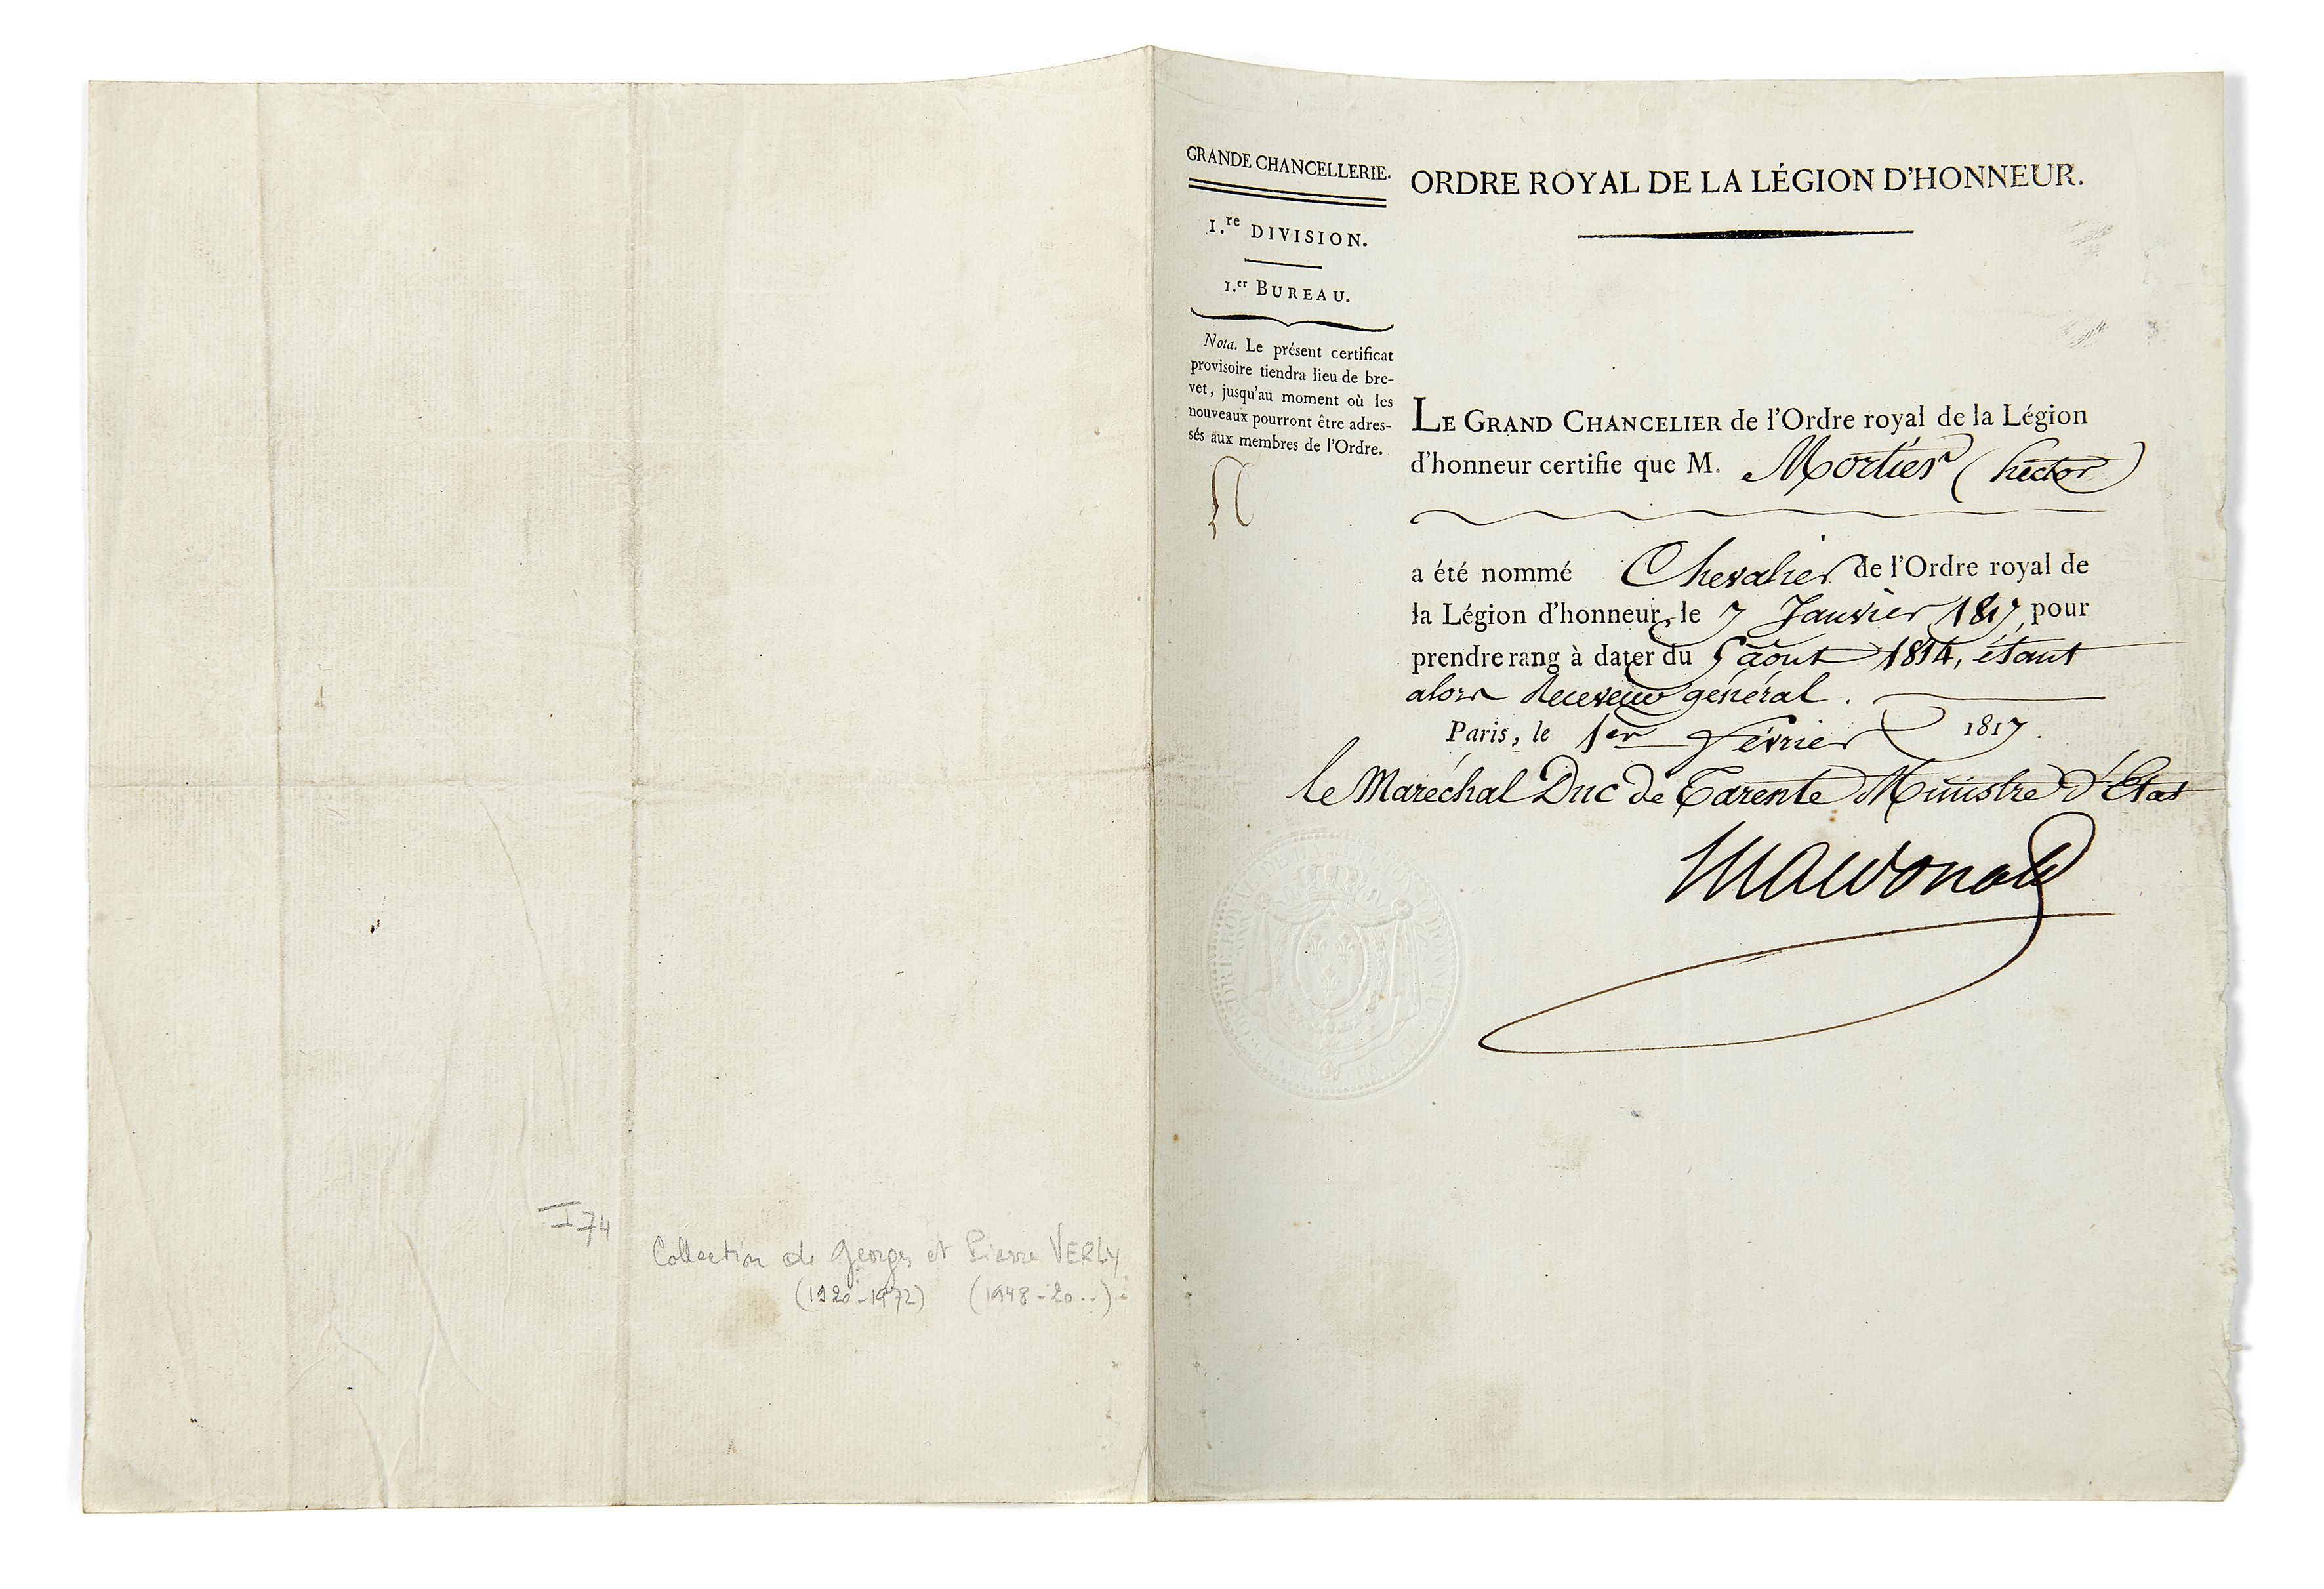 GRANDE CHANCELLERIE.
1.re DIVISION.
1.er BUREAU.
Nota. Le présent certificat
provisoire tiendra lieu de bre-
vet, jusqu'au moment où les
nouveaux pourront être adres-
sés aux membres de l'Ordre.
ORDRE ROYAL DE LA LÉGION D'HONNEUR.
LE GRAND CHANCELIER de l'Ordre royal de la Légion
d'honneur certifie que M. Mortier (hector)
a été nommé Chevalier de l'Ordre royal de
la Légion d'honneur, le 7 Janvier 1817, pour
prendre rang à dater du 5 aout 1814, étant
alors Receveur général.
Paris, le 1er février 1817.
le Maréchal Duc de Tarente Ministre d'Etat
Macdonald
I 74
Collection de Georges et Pierre VERLY
(1920-1972) (1948-20..)